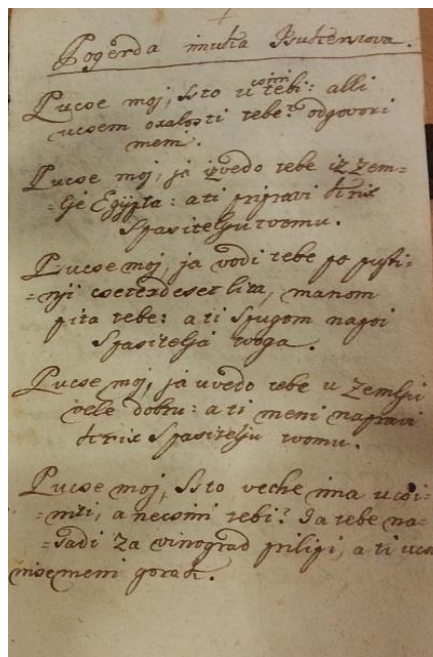 Pogerda imuka Isukerstova.
Pucse moj, sto u csini tebi: alli
ucsem oxalosti tebe? odgovori
meni.
Pucse moj, ja izvedo tebe iz zem-
-gje Egypta: a ti pripravi krix
Spasitelju tvomu.
Pucse moj, ja vodi tebe po pusti-
-nji cseterdeset lita, manom
pita tebe: a ti spugom napoi
Spasitelja tvoga.
Pucse moj, ja uvedo tebe u Zemlju
vele dobru: a ti meni napravi
krix Spasitelju tvomu.
Pucse moj, sto veche ima ucsi-
-niti, a necsini tebi? Ja tebe na-
-sadi za vinograd prilipi, a ti ucs
nisc meni gorak.